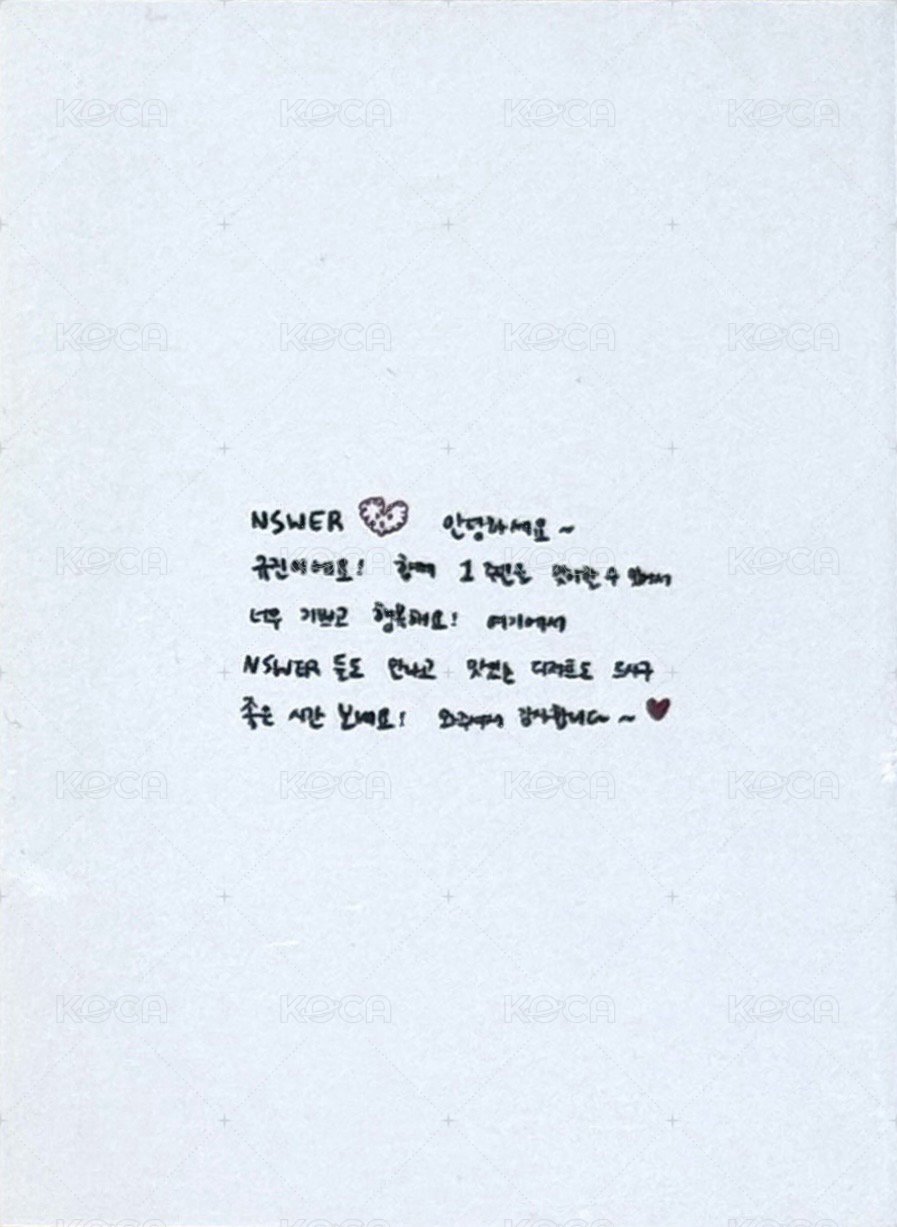 NSWER 안녕하세요~
규진이에요! 함께 1주년을 맞이할 수 있어서
너무 기쁘고 행복해요! 여기에서
NSWER 들도 만나고 맛있는 디저트도 드시구
좋은 시간 보내요! 와주셔서 감사합니다~~
KOCA KOCA KOCA KOCA
KOCA KOCA KOCA KOCA
KOCA KOCA KOCA KOCA
KOCA KOCA KOCA KOCA
KOCA KOCA KOCA KOCA
KOCA KOCA KOCA KOCA